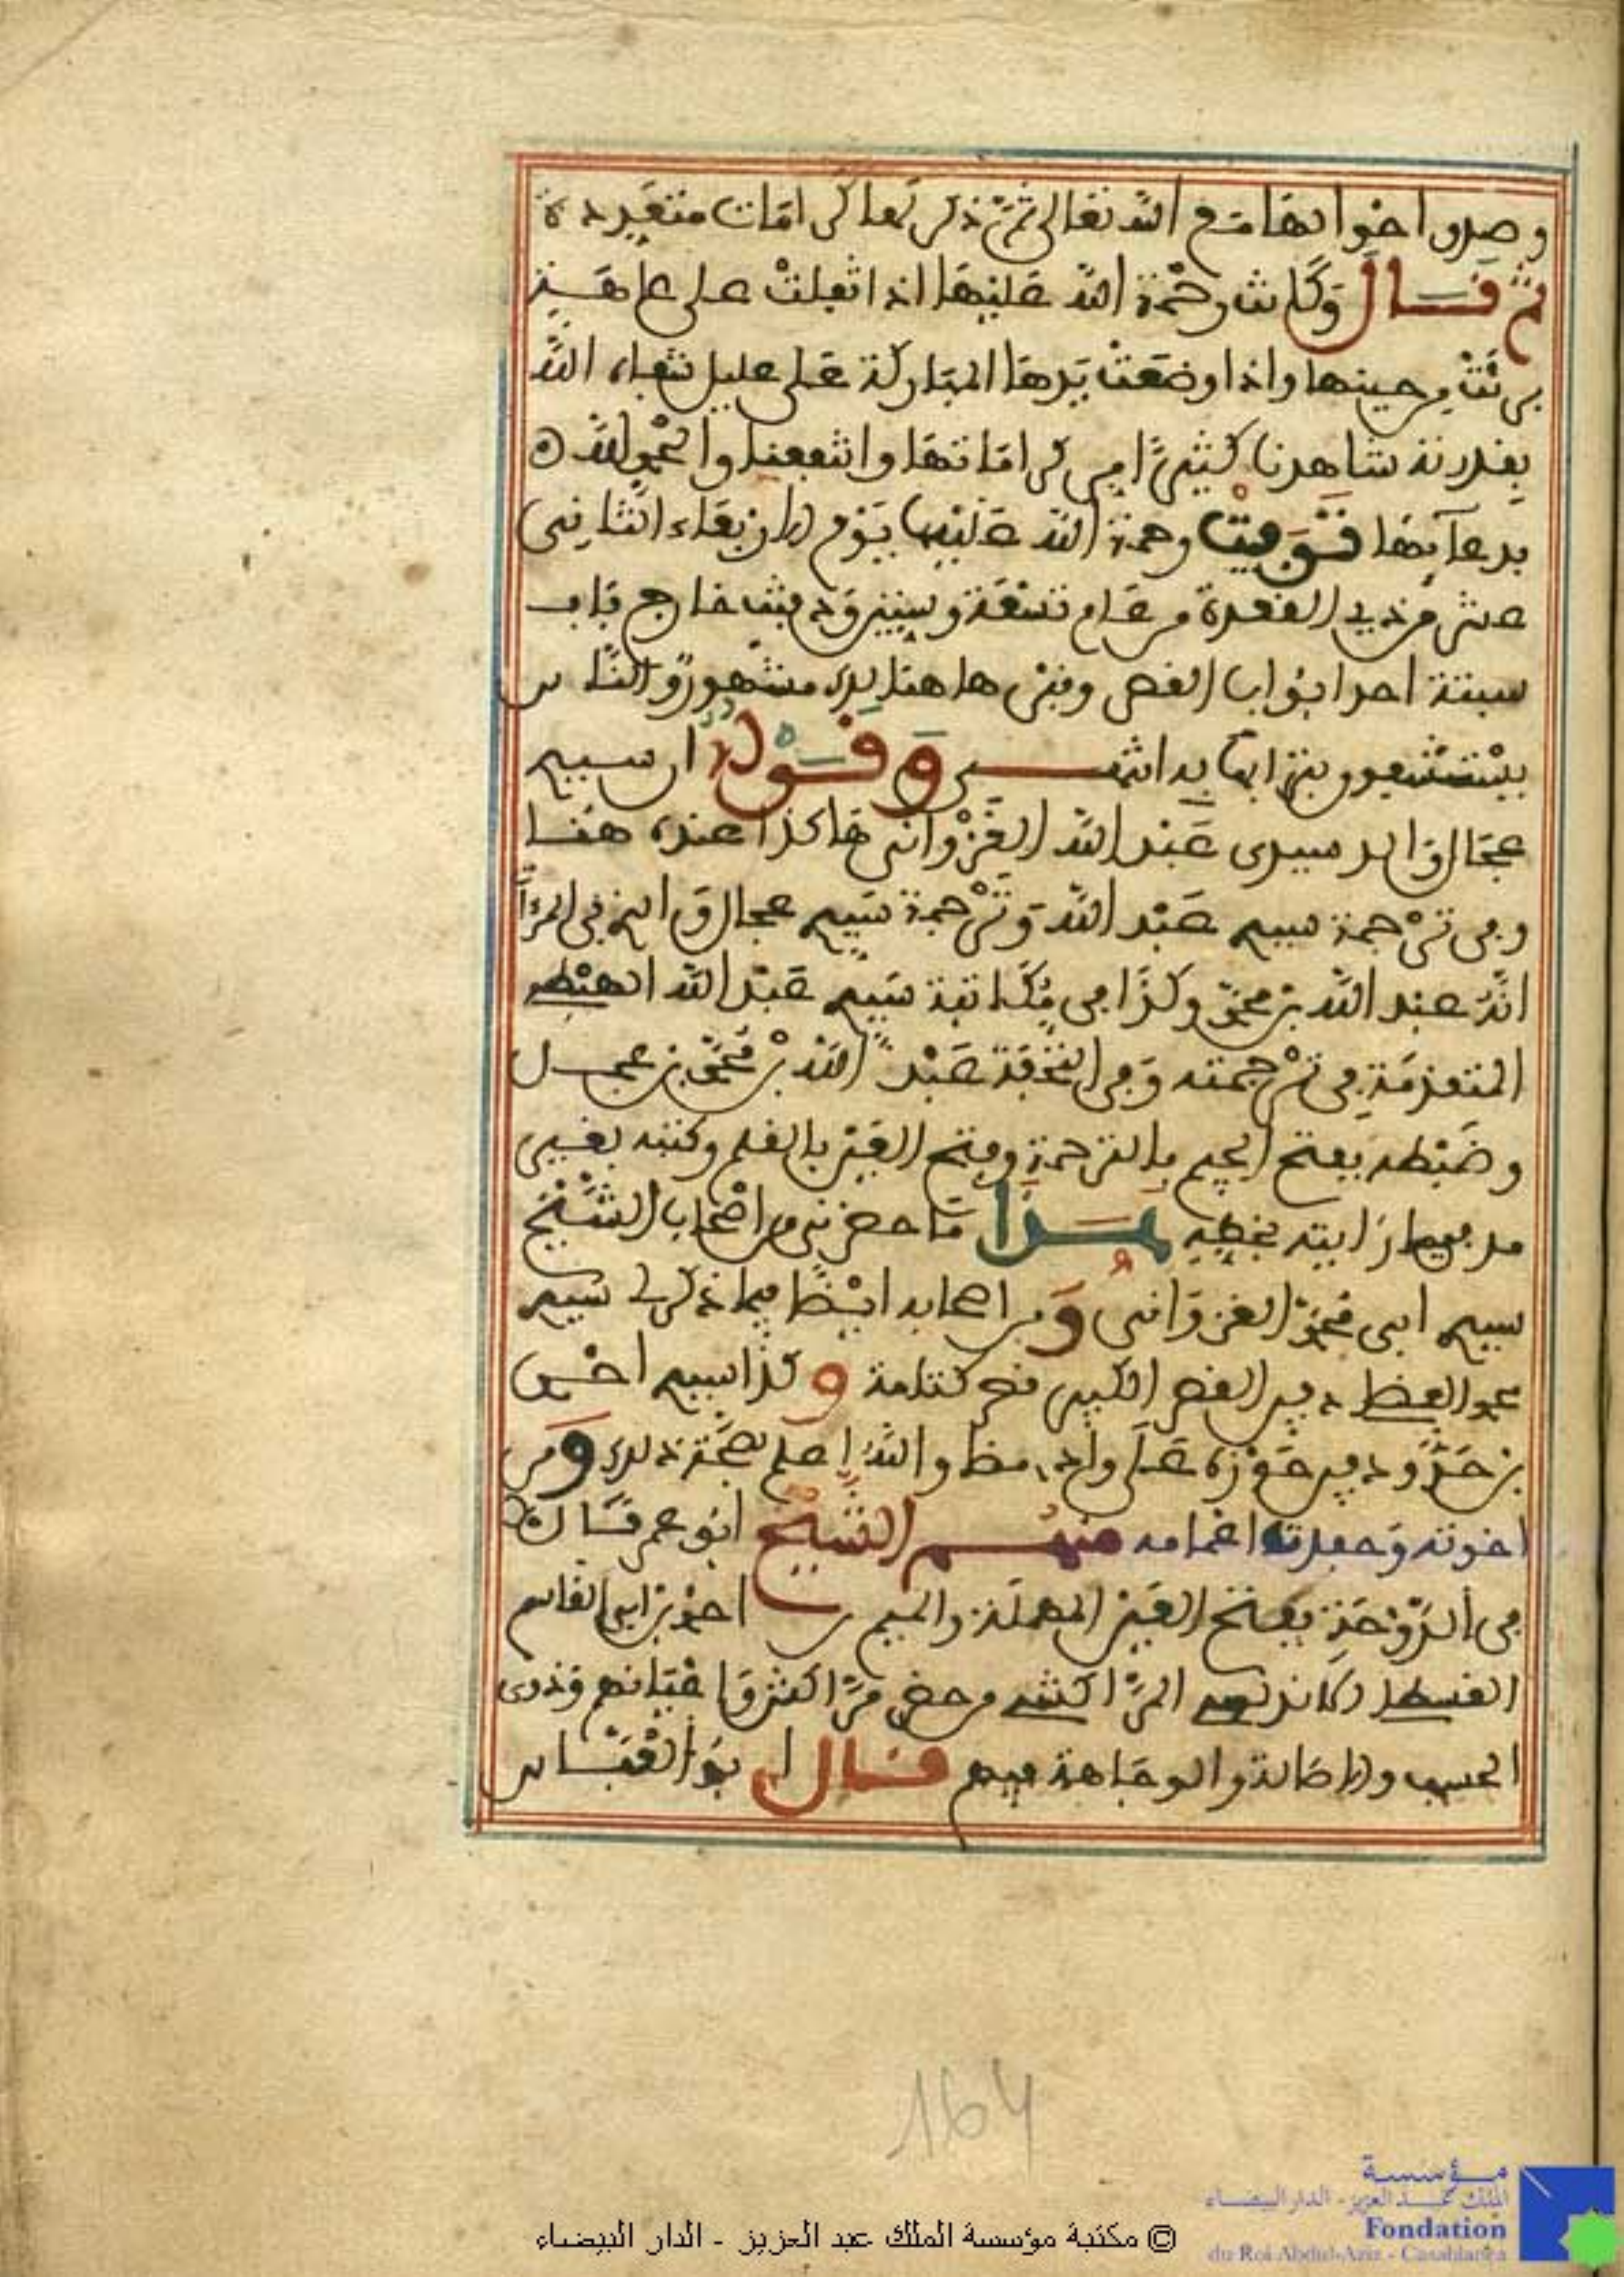 وصدق احوالها مع الله تعالى ثم ذكر لها كرامات متعددة
ثم قال وكانت رحمة الله عليها اذا تفلت على عاهة
برئت من حينها واذا وضعت يدها المباركة على عليل شفاه الله
بقدرته شاهدنا كثيرا من كراماتها وانتفعنا والحمد لله
بدعائها توفيت رحمة الله عليها يوم الاربعاء الثاني
عشر من ذي القعدة من عام تسعة وستين ودفنت خارج باب
سبتة احد ابواب القصر وقبرها هنالك مشهور والناس
يستشفعون بترابه انتهى وقوله ان سيدي
عجال والد سيدي عبد الله الغزواني هاكذا عنده هنا
وفي ترجمة سيدي عبد الله وترجمة سيدي عجال والذي في المرآة
انه عبد الله بن محمد وكذا في مكاتبة سيدي عبد الله الهبطي
المتقدمة في ترجمته وفي التحفة عبد الله بن محمد بن عجال
وضبطه بفتح الجيم بالترجمة وفتح العين بالقلم وكتبه بغير
مد فيما رايته بخطه هذا ما حضرني من اصحاب الشيخ
سيدي ابي محمد الغزواني ومن اصحابه ايضا فيما ذكر لي سيدي
محمد دفين القصر الكبير قصر كتامة وكذا سيدي احسن
بن حدو دفين حوزه على واد والله اعلم بصحة ذلك ومن
اخوته وحفدته اعمامه منهم الشيخ ابو عمر قال
في الدوحة بفتح العين المهملة والميم احمد بن ابي القاسم
القسطلي كان المراكشي من حضرة مراكش واعيانهم وذوي
الحسب والاصالة والوجاهة فيهم قال ابو العباس
164
© مكتبة مؤسسة الملك عبد العزيز - الدار البيضاء
مؤسسة
الملك عبد العزيز - الدار البيضاء
Fondation
du Roi Abdul-Aziz - Casablanca